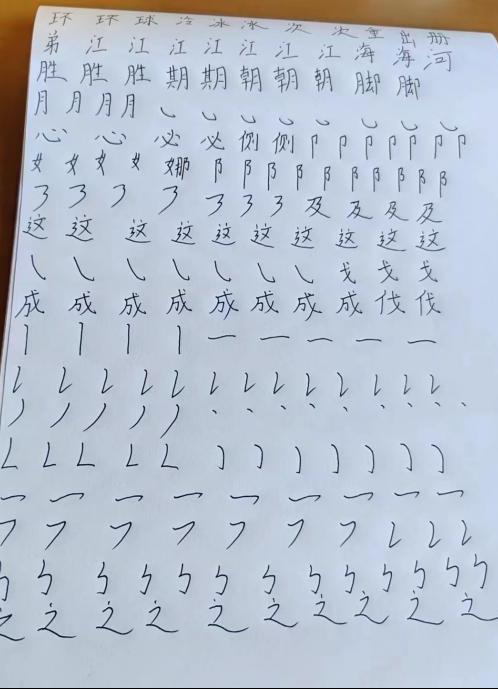 环 环 球 冷 冰 冰 次 次 重 出 册
弟 江 江 江 江 江 江 江 海 海 河
胜 胜 胜 期 期 朝 朝 朝 脚 脚
月 月 月 月
心 心 必 必 侧 侧 阝 阝 阝 阝 阝
女 女 女 女 娜 阝 阝 阝 阝 阝 阝 阝 阝 阝
㇋ ㇋ ㇋ ㇋ ㇋ ㇋ ㇋ 及 及 及 及
这 这 这 这 这 这 这 这 这 这
㇂ ㇂ ㇂ ㇂ ㇂ ㇂ ㇂ 戈 戈 戈
成 成 成 成 成 成 成 成 伐 伐
丨 丨 丨 丨 一 一 一 一 一
㇙ ㇙ ㇙ ㇙ ㇙ ㇙ ㇙ ㇙ ㇙ ㇙ ㇙ ㇙
丿 丿 丿 丿 丿 丶 丶 丶 丶 丶 丶 丶
㇗ ㇗ ㇗ ㇗ ㇗ ㇚ ㇚ ㇚ ㇚ ㇚ ㇚ ㇚
㇖ ㇖ ㇖ ㇖ ㇖ ㇖ ㇖ ㇖ ㇖
㇇ ㇇ ㇇ ㇇ ㇇ ㇇ ㇇ ㇙ ㇙ ㇙
㇉ ㇉ ㇉ ㇉ ㇉ ㇉ ㇉ ㇉ ㇉ ㇉ ㇉ ㇉ ㇉
之 之 之 之 之 之 之 之 之 之